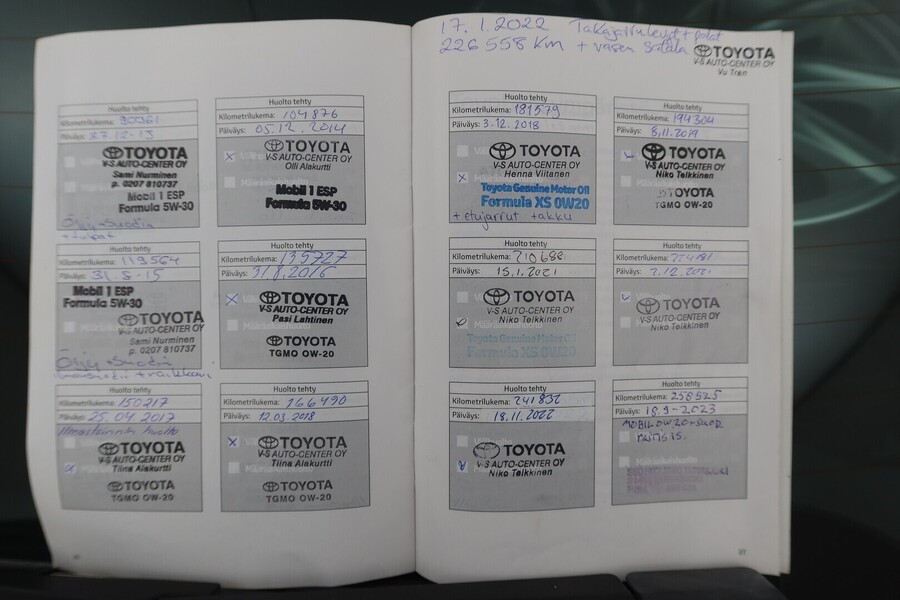 Huolto tehty
Kilometrilukema: 90361
Päiväys: 27-12-13
TOYOTA
V-S AUTO-CENTER OY
Sami Nurminen
p. 0207 810737
Mobil 1 ESP
Formula 5W-30
Huolto tehty
Kilometrilukema: 104876
Päiväys: 05.12.2014
TOYOTA
V-S AUTO-CENTER OY
Olli Alakurtti
Mobil 1 ESP
Formula 5W-30
Huolto tehty
Kilometrilukema: 119564
Päiväys: 31.8-15
Mobil 1 ESP
Formula 5W-30
TOYOTA
V-S AUTO-CENTER OY
Sami Nurminen
p. 0207 810737
Huolto tehty
Kilometrilukema: 135727
Päiväys: 31.8.2016
TOYOTA
V-S AUTO-CENTER OY
Pasi Lahtinen
TOYOTA
TGMO OW-20
Huolto tehty
Kilometrilukema: 150217
Päiväys: 25.04.2017
TOYOTA
V-S AUTO-CENTER OY
Tiina Alakurtti
TOYOTA
TGMO OW-20
Huolto tehty
Kilometrilukema: 166490
Päiväys: 12.03.2018
TOYOTA
V-S AUTO-CENTER OY
Tiina Alakurtti
TOYOTA
TGMO OW-20
17.1.2022 Takajarrulevyt + palat
226 558 Km + vasen satula
TOYOTA
V-S AUTO-CENTER OY
Vu Tran
Huolto tehty
Kilometrilukema: 181579
Päiväys: 3.12.2018
TOYOTA
V-S AUTO-CENTER OY
Henna Viitanen
Toyota Genuine Motor Oil
Formula XS 0W20
+ etujarrut + akku
Huolto tehty
Kilometrilukema: 194304
Päiväys: 8.11.2019
TOYOTA
V-S AUTO-CENTER OY
Niko Telkkinen
TOYOTA
TGMO OW-20
Huolto tehty
Kilometrilukema: 210688
Päiväys: 15.1.2021
TOYOTA
V-S AUTO-CENTER OY
Niko Telkkinen
Toyota Genuine Motor Oil
Formula XS 0W20
Huolto tehty
Kilometrilukema:
Päiväys: 2.12.2021
TOYOTA
V-S AUTO-CENTER OY
Niko Telkkinen
Huolto tehty
Kilometrilukema: 241832
Päiväys: 18.11.2022
TOYOTA
V-S AUTO-CENTER OY
Niko Telkkinen
Huolto tehty
Kilometrilukema: 258525
Päiväys: 18.9-2023